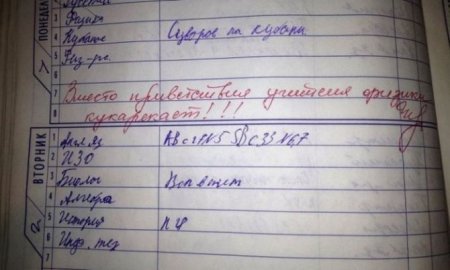 ПОНЕДЕЛ
Физика
3
4 Кубанов Суворов на Кубани
5 Физ-ра
6
7
8
Вместо приветствия учителя физики
кукарекает!!!
ВТОРНИК
1 Англ яз AB c 27 N5 SB c 33 N6,7
2 ИЗО
3 Биолог Вопр
4 Алгебра
5 История п 4
6 Инф. тех
7